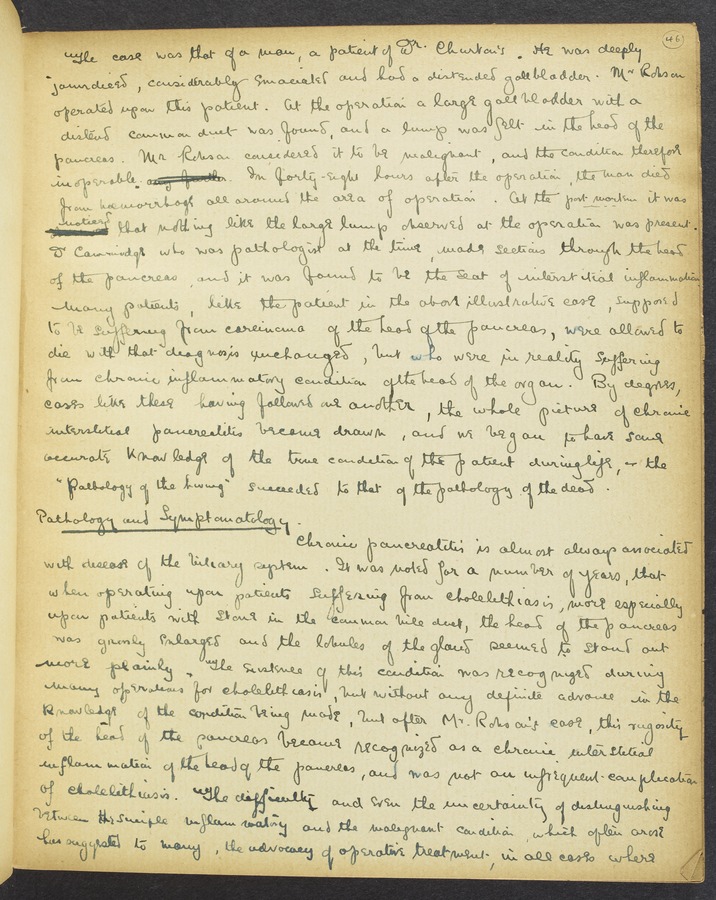 46
The case was that of a man, a patient of Dr. Churton's. He was deeply
jaundiced, considerably emaciated and had a distended gallbladder. Mr Robson
operated upon this patient. At the operation a large gallbladder with a
distend common duct was found, and a lump was felt in the head of the
pancreas. Mr Robson considered it to be malignant, and the condition therefore
inoperable. In forty-eight hours after the operation, the man died
from hæmorrhage all around the area of operation. At the post mortem it was
noticed that nothing like the large lump observed at the operation was present.
Dr Cammidge who was pathologist at the time, made sections through the head
of the pancreas, and it was found to be the seat of interstitial inflammation
Many patients, like the patient in the above illustrative case, supposed
to be suffering from carcinoma of the head of the pancreas, were allowed to
die with that diagnosis unchanged, but who were in reality suffering
from chronic inflammatory condition of the head of the organ. By degrees,
cases like these having followed one another, the whole picture of chronic
interstitial pancreatitis became drawn, and we began to have some
accurate knowledge of the true condition of the patient during life, - the
"Pathology of the living" succeeded to that of the pathology of the dead.
Pathology and Symptomatology.
Chronic pancreatitis is almost always associated
with disease of the biliary system. It was noted for a number of years, that
when operating upon patients suffering from cholelithiasis, more especially
upon patients with stone in the common bile duct, the head of the pancreas
was grossly enlarged and the lobules of the gland seemed to stand out
more plainly. The existence of this condition was recognized during
many operations for cholelithiasis, but without any definite advance in the
knowledge of the condition being made, but after Mr. Robson's case, this rugosity
of the head of the pancreas became recognized as a chronic interstitial
inflammation of the head of the pancreas, and was not an infrequent complication
of cholelithiasis. The difficulty and even the uncertainty of distinguishing
between the simple inflammatory and the malignant condition, which often arose
has suggested to many, the advocacy of operative treatment, in all cases where